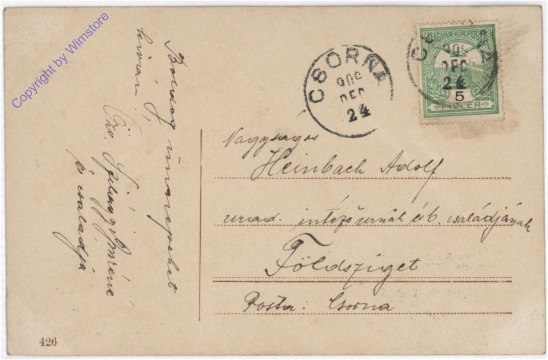 Copyright by Wimstore
Boldog ünnepeket
kiván
Özv.
és családja
CSORNA
909
DEC
24
CS NA
909
DEC
24
MAGYAR KIR. POSTA
5
FILLER
Nagyságos
Heinbach Adolf
urad. intéző urnák és b. családjának
Földsziget
Posta: Csorna
426